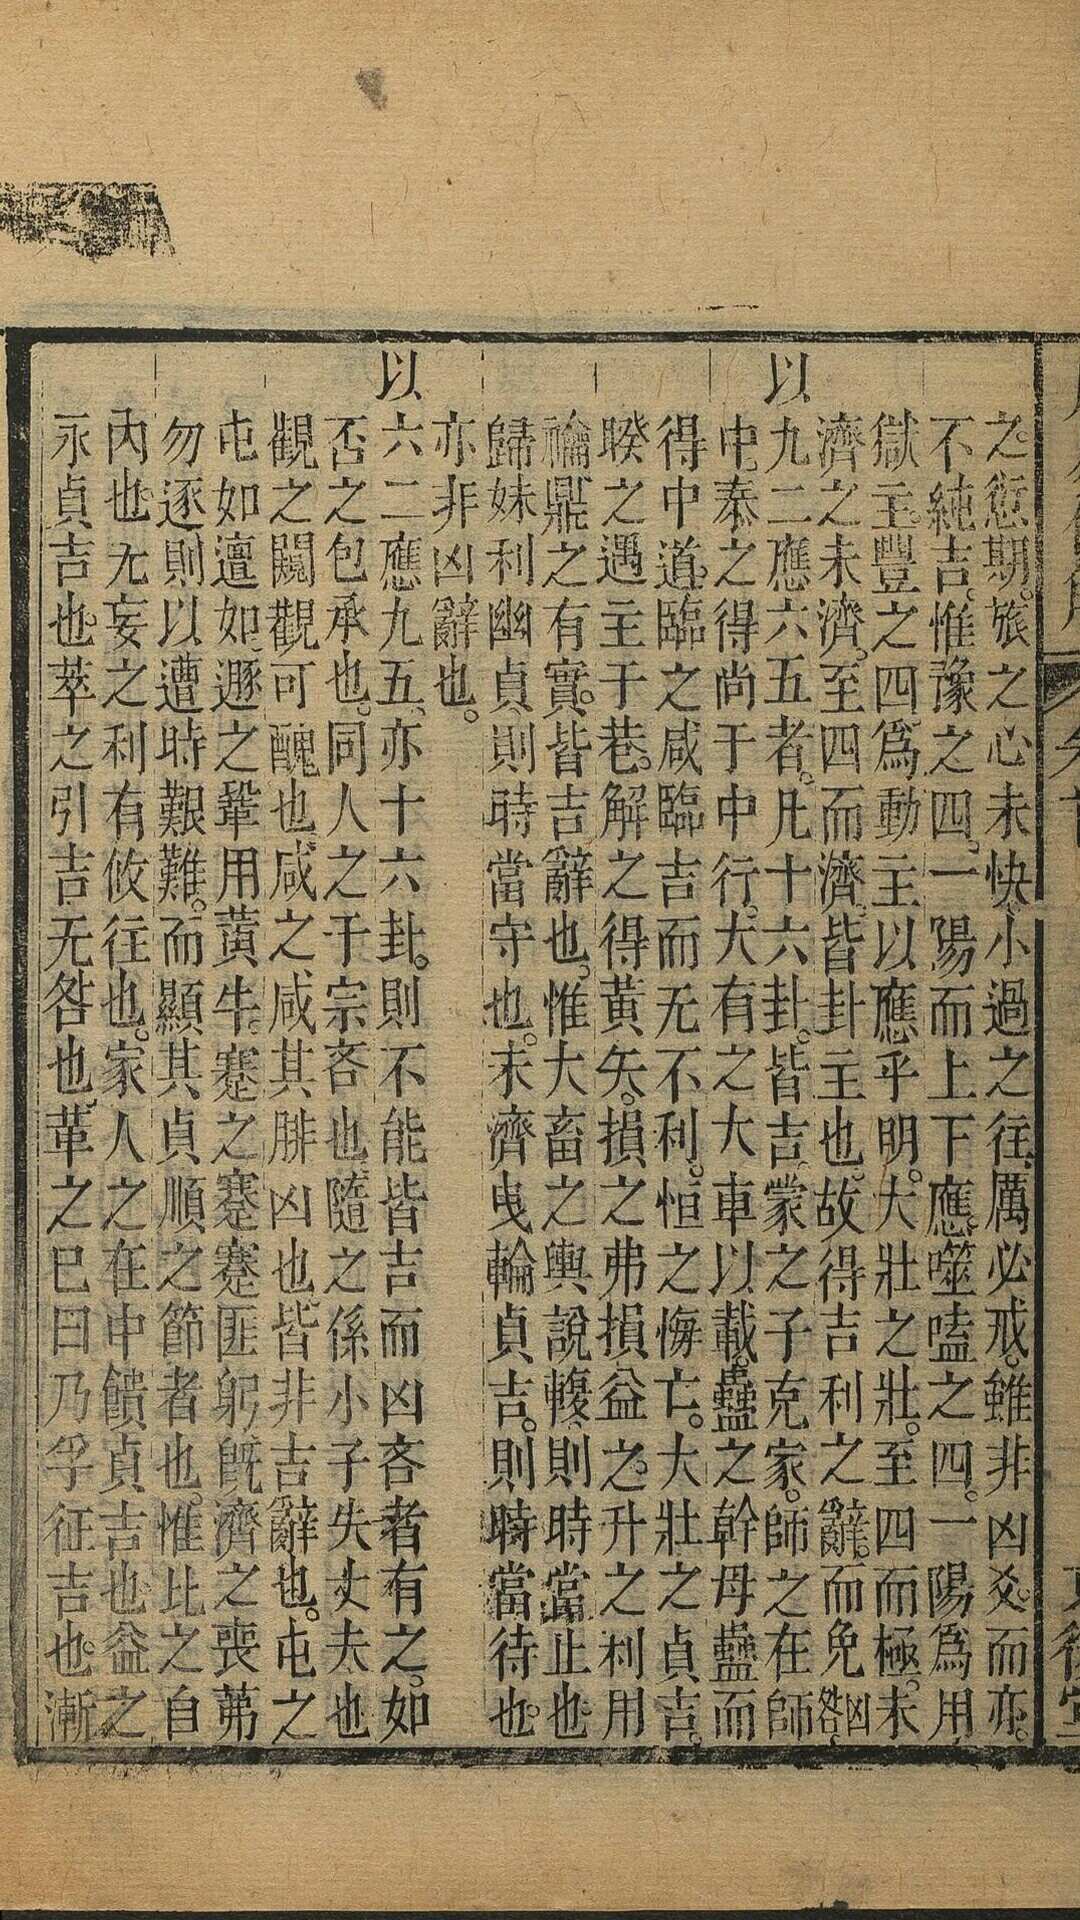 之愆期。旅之心未快、小過之往厲必戒。雖非凶爻。而亦。
不純吉。惟豫之四。一陽而上下應。噬嗑之四。一陽爲用
獄主。豐之四爲動主以應乎明。大壯之壯。至四而極。未
濟之未濟。至四而濟。皆卦主也。故得吉利之辭。而免凶咎、
以九二應六五者。凡十六卦。皆吉。蒙之子克家。師之在師
中。泰之得尚于中行。大有之大車以載。蠱之幹母蠱而
得中道。臨之咸臨吉而无不利。恒之悔亡。大壯之貞吉。
睽之遇主于巷。解之得黃矢。損之弗損益之。升之利用
禴、鼎之有實。皆吉辭也。惟大畜之輿說輹、則時當止也
歸妹利幽貞則時當守也。未濟曳輪貞吉。則時當待也。
亦非凶辭也。
以六二應九五、亦十六卦。則不能皆吉而凶吝者有之。如
否之包承也。同人之于宗吝也。隨之係小子失丈夫也
觀之闚觀可醜也、咸之咸其腓凶也、皆非吉辭也。屯之
屯如邅如、遯之鞏用黃牛。蹇之蹇蹇匪躬、旣濟之喪茀
勿逐則以遭時艱難。而顯其貞順之節者也。惟比之自
內也、无妄之利有攸往也。家人之在中饋貞吉也、益之
永貞吉也。萃之引吉无咎也、革之巳日乃孚征吉也。漸